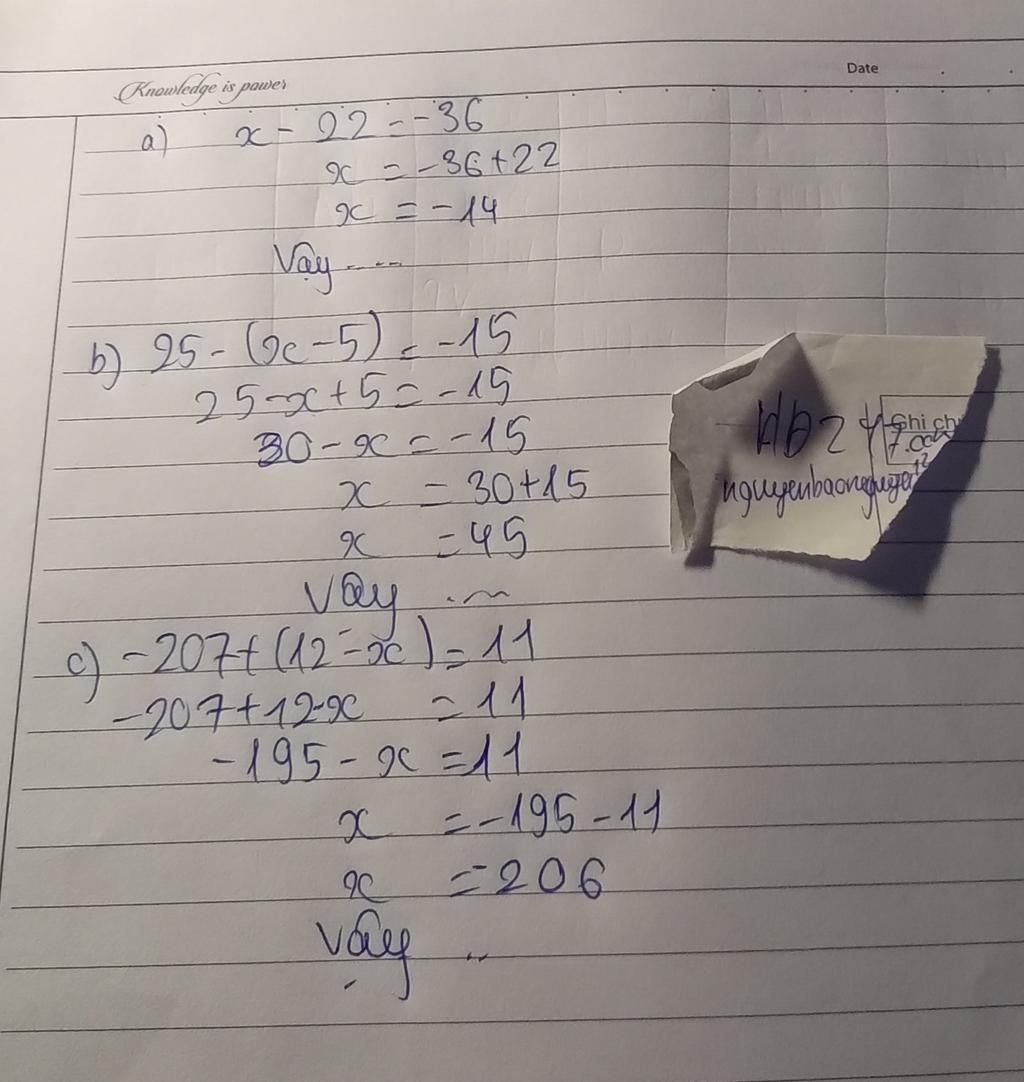 Knowledge is power
Date
a) x - 22 = -36
x = -36+22
x = -14
Vậy ....
b) 25 - (x - 5) = -15
25-x+5 = -15
30 - x = -15
x = 30+15
x = 45
Vậy ...
c) -207+(12-x) = 11
-207+12-x = 11
-195 - x = 11
x = -195 - 11
x = -206
Vậy ..
Ghi ch
nguyenbaonguyen12